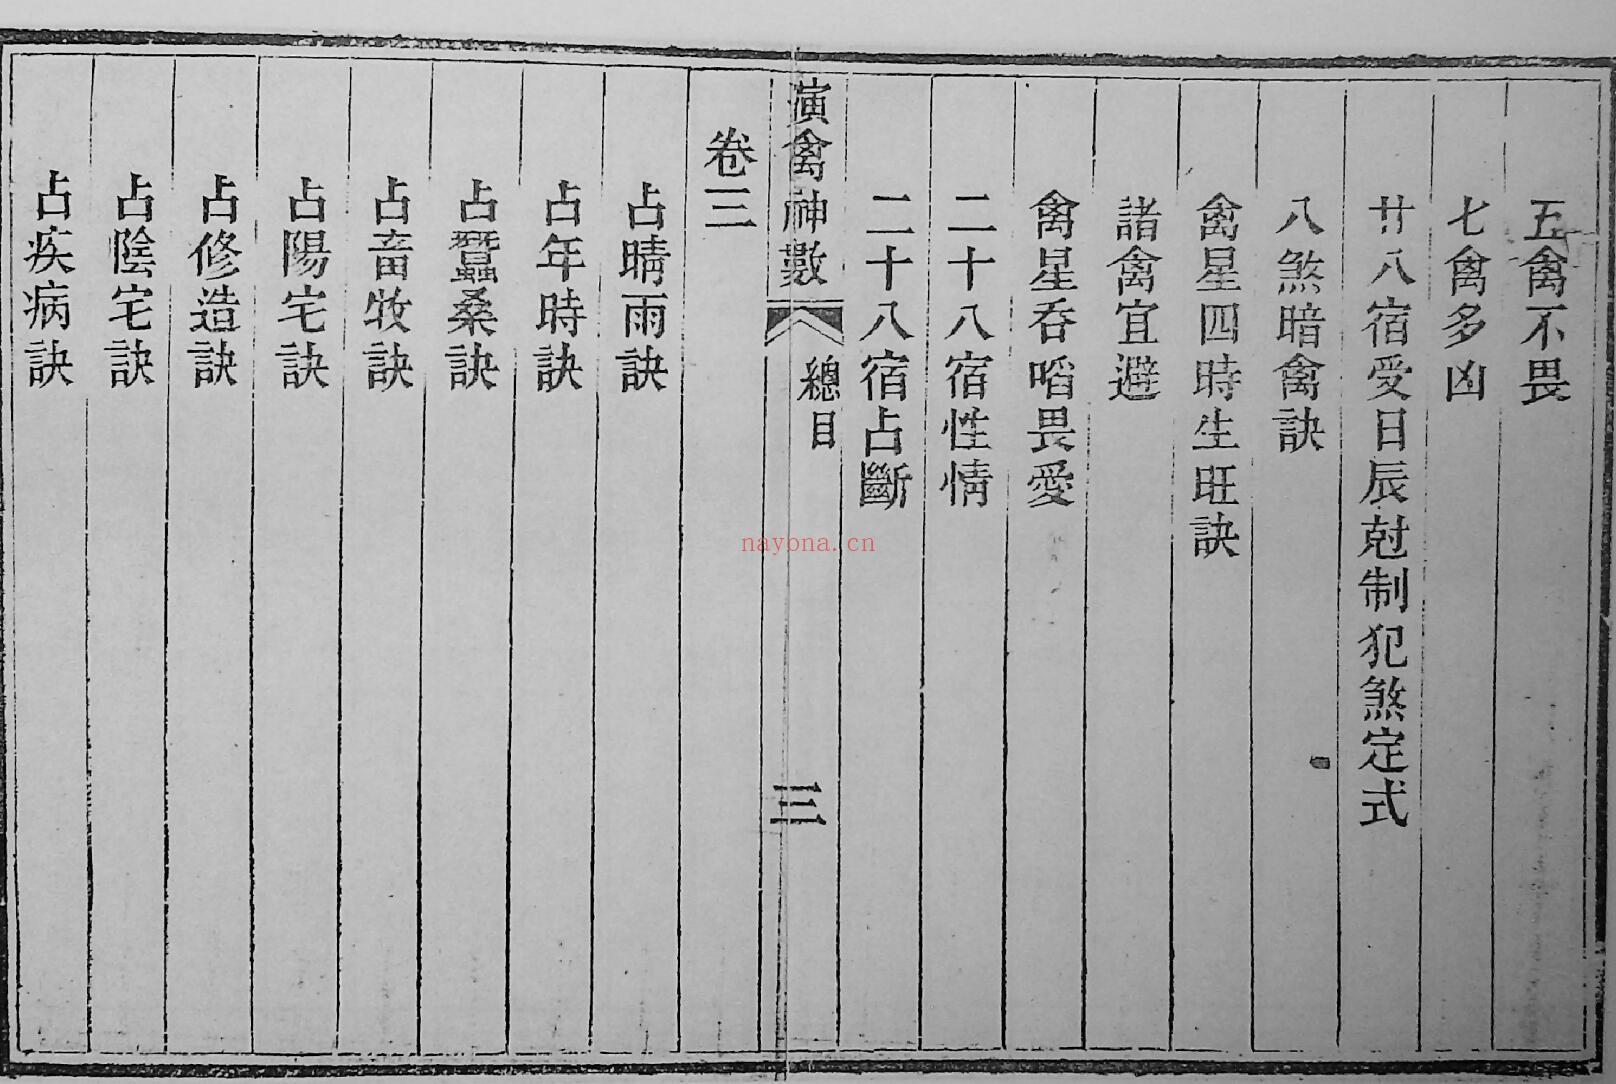 五禽不畏
七禽多凶
廿八宿受日辰尅制犯煞定式
八煞暗禽訣
禽星四時生旺訣
諸禽宜避
禽星吞啗畏愛
二十八宿性情
二十八宿占斷
演禽神數 總目 三
卷三
占晴雨訣
占年時訣
占蠶桑訣
占畜牧訣
占陽宅訣
占修造訣
占陰宅訣
占疾病訣
nayona.cn